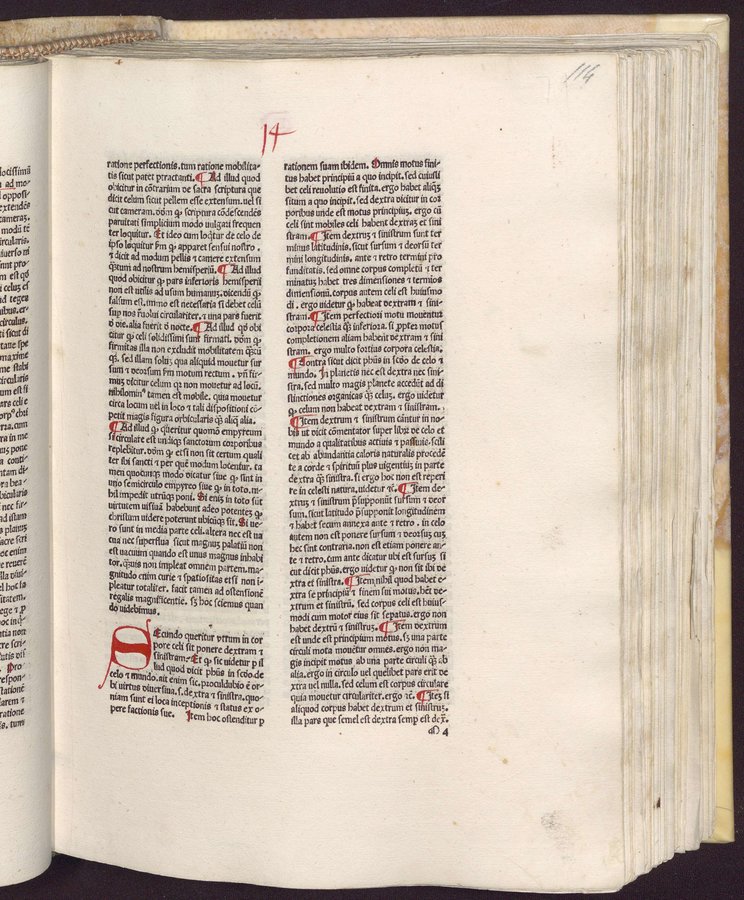 114
14
ratione perfectionis. tum ratione mobilita-
tis sicut patet ptractanti. Ad illud quod
obicitur in cōtrarium de sacra scriptura que
dicit celum sicut pellem esse extensum. uel si
cut cameram. dōm ꝙ scriptura cōdescendēs
paruitati simplicium modo uulgari frequen
ter loquitur. Et ideo cum loqtur de celo de
ipso loquitur fm ꝙ apparet sensui nostro.
⁊ dicit ad modum pellis ⁊ camere extensum
q̄tum ad nostrum hemisperiū. Ad illud
quod obicitur ꝙ pars inferioris hemisperii
non est utilis ad usum humanuʒ. dicendū ꝙ
falsum est. immo est necessaria si debet celū
sup nos fuolui circulariter. ⁊ una pars fuerit
ō die. alia fuerit ō nocte. Ad illud qō obi
citur ꝙ celi solidissimi sunt firmati. dōm ꝙ
firmitas illa non excludit mobilitatem q̄cū
qʒ. sed illam soluʒ qua aliquid mouetur sur
sum ⁊ deorsum fm motum rectum. vn̄ fir-
muʒ dicitur celum qa non mouetur ad locū.
nihilomin⁹ tamen est mobile. quia mouetur
circa locum uel in loco ⁊ tali dispositioni cō-
petit magis figura orbicularis q̄ aliq alia.
Ad illud ꝙ queritur quomō empyreum
si circulare est undiqʒ sanctorum corporibus
replebitur. dōm ꝙ etsi non sit certum quali
ter ibi sancti ⁊ per quē modum locentur. ta
men quocunqʒ modo dicatur siue ꝙ sint in
uno semicirculo empyreo siue ꝙ in toto. ni-
hil impedit utrūqʒ poni. Si eniʒ in toto sūt
virtutem uisiuā habebunt adeo potenteʒ ꝙ
christum uidere poterunt ubicūqʒ sit. Si ue-
ro sunt in media parte celi. altera nec est ua
cua nec superflua sicut magnuʒ palatiū non
est uacuum quando est unus magnus inhabi
tor. q̄uis non impleat omnem partem. ma-
gnitudo enim curie ⁊ spatiositas etsi non i-
pleatur totaliter. facit tamen ad ostensionē
regalis magnificentie. sʒ hoc sciemus quan
do uidebimus.
SEcundo queritur vtrum in cor
pore celi sit ponere dextram ⁊
sinistram. Et ꝙ sic uidetur p il
lud quod dicit phūs in scōo de
celo ⁊ mundo. ait enim sic. proculdubio ē or-
bi virtus diuersiua. s. dextra ⁊ sinistra. quo-
niam sunt ei loca inceptionis ⁊ status ex o-
pere factionis sue. Item hoc ostenditur p
rationem suam ibidem. Omnis motus fini-
tus habet principiū a quo incipit. sed cuiusli
bet celi reuolutio est finita. ergo habet aliqʒ
situm a quo incipit. sed dextra dicitur in cor
poribus unde est motus principiuʒ. ergo cū
celi sint mobiles celi habent dextraʒ et sini
stram. Item dextruʒ ⁊ sinistrum sunt ter
minus latitudinis. sicut sursum ⁊ deorsū ter
mini longitudinis. ante ⁊ retro termini pro
funditatis. sed omne corpus completū ⁊ ter
minatuʒ habet tres dimensiones ⁊ termīos
dimensionū. corpus autem celi est huiusmo
di. ergo uidetur ꝙ habeat dextram ⁊ sini-
stram. Item perfectiori motu mouentur
corpora celestia q̄ inferiora. si pptei motus
completionem aliam habent dextram ⁊ sini
stram. ergo multo fortius corpora celestia.
Contra sicut dicit phūs in scōo de celo ⁊
mundo. In planetis nec est dextra nec sini-
stra. sed multo magis planete accedūt ad di
stinctiones organicas q̄ celuʒ. ergo uidetur
ꝙ celum non habeat dextram ⁊ sinistram.
Item dextrum ⁊ sinistrum causantur in no-
bis ut dicit cōmentator super librʒ de celo et
mundo a qualitatibus actiuis ⁊ passiuis. scili
cet ab abundantia caloris naturalis procedē
te a corde ⁊ spirituū plus uigentiuʒ in parte
dextra q̄ sinistra. si ergo hoc non est reperi
re in celesti natura. uidetur ⁊c̄. Item de-
xtruʒ ⁊ sinistrum psupponūt sursum ⁊ deor
sum. sicut latitudo psupponit longitudinem
⁊ habet secum annexa ante ⁊ retro. in celo
autem non est ponere sursum ⁊ deorsuʒ cuʒ
hec sint contraria. non est etiam ponere an-
te ⁊ retro. cum ante dicatur ubi est sursuʒ si
cut dicit phūs. ergo uidetur ꝙ non sit ibi de
xtra et sinistra. Item nihil quod habet e-
xtra se principiū ⁊ finem sui motus. het de-
xtrum et sinistrū. sed corpus celi est huius-
modi cum motor eius sit sepatus. ergo non
habet dextrū ⁊ sinistruʒ. Item dextrum
est unde est principium motus. sʒ una parte
circuli mota mouētur omnes. ergo non ma-
gis incipit motus ab una parte circuli q̄ ab
alia. ergo in circulo uel quelibet pars erit de
xtra uel nulla. sed celum est corpus circulare
quia mouetur circulariter. ergo ⁊c̄. Iteʒ si
aliquod corpus habet dextrum et sinistruʒ.
illa pars que semel est dextra semp est dex̄.
m 4